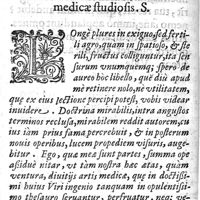 medicæ studiosis. S.
LOngè plures in exiguo, sed ferti
li agro, quàm in spatioso, & ste
rili, fructus colliguntur, ita sen
surum unumquemq; spero de
aureo hoc libello, quē diu apud
me retinere nolo, ne utilitatem,
quæ ex eius lectione percipi potest, vobis videar
inuidere. Doctrina mirabilis, intra angustos
terminos reclusa, mirabilem reddit autorem, cu
ius iam prius fama percrebuit, & in posterum
nouis operibus, lucem propediem visuris, auge
bitur. Ego, quas meæ sunt partes, summa ope
assiduè nitar, vt tàm nostra hæc ætas, quàm
ventura, diuitijs artis medicæ, quæ in doctissi
mi huius Viri ingenio tanquam in opulentissi
mo thesauro seruantur, perfruatur, neq; ve-